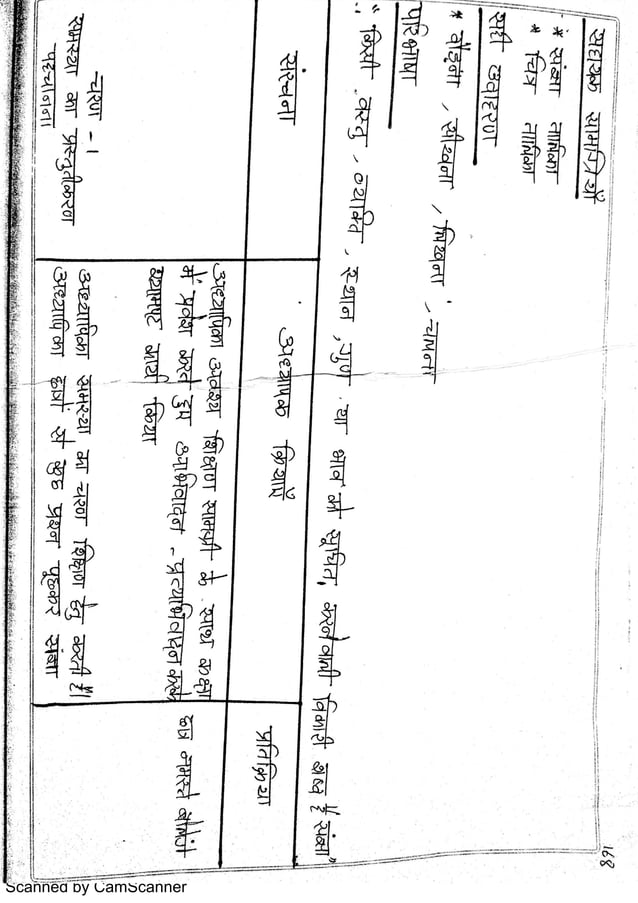 168
सहायक सामग्रियाँ
* संज्ञा तालिका
* चित्र तालिका
सही उदाहरण
* बैठना, सीखना, लिखना, चलना
परिभाषा
"किसी वस्तु, व्यक्ति, स्थान, गुण या भाव को सूचित करने वाली विकारी शब्द हैं संज्ञा"
संरचना
अध्यापक क्रियाएँ
प्रतिक्रिया
चरण -1
समस्या का प्रस्तुतीकरण
पहचानना
अध्यापिका अवश्य शिक्षण सामग्री के साथ कक्षा
में प्रवेश करते हुए अभिवादन - प्रत्याभिवादन करके
श्यामपट कार्य किया
अध्यापिका समस्या का चरण शिक्षण हेतु करती है।
अध्यापिका छात्रों से कुछ प्रश्न पूछकर संज्ञा
छात्र नमस्ते बोलेंगे
Scanned by CamScanner